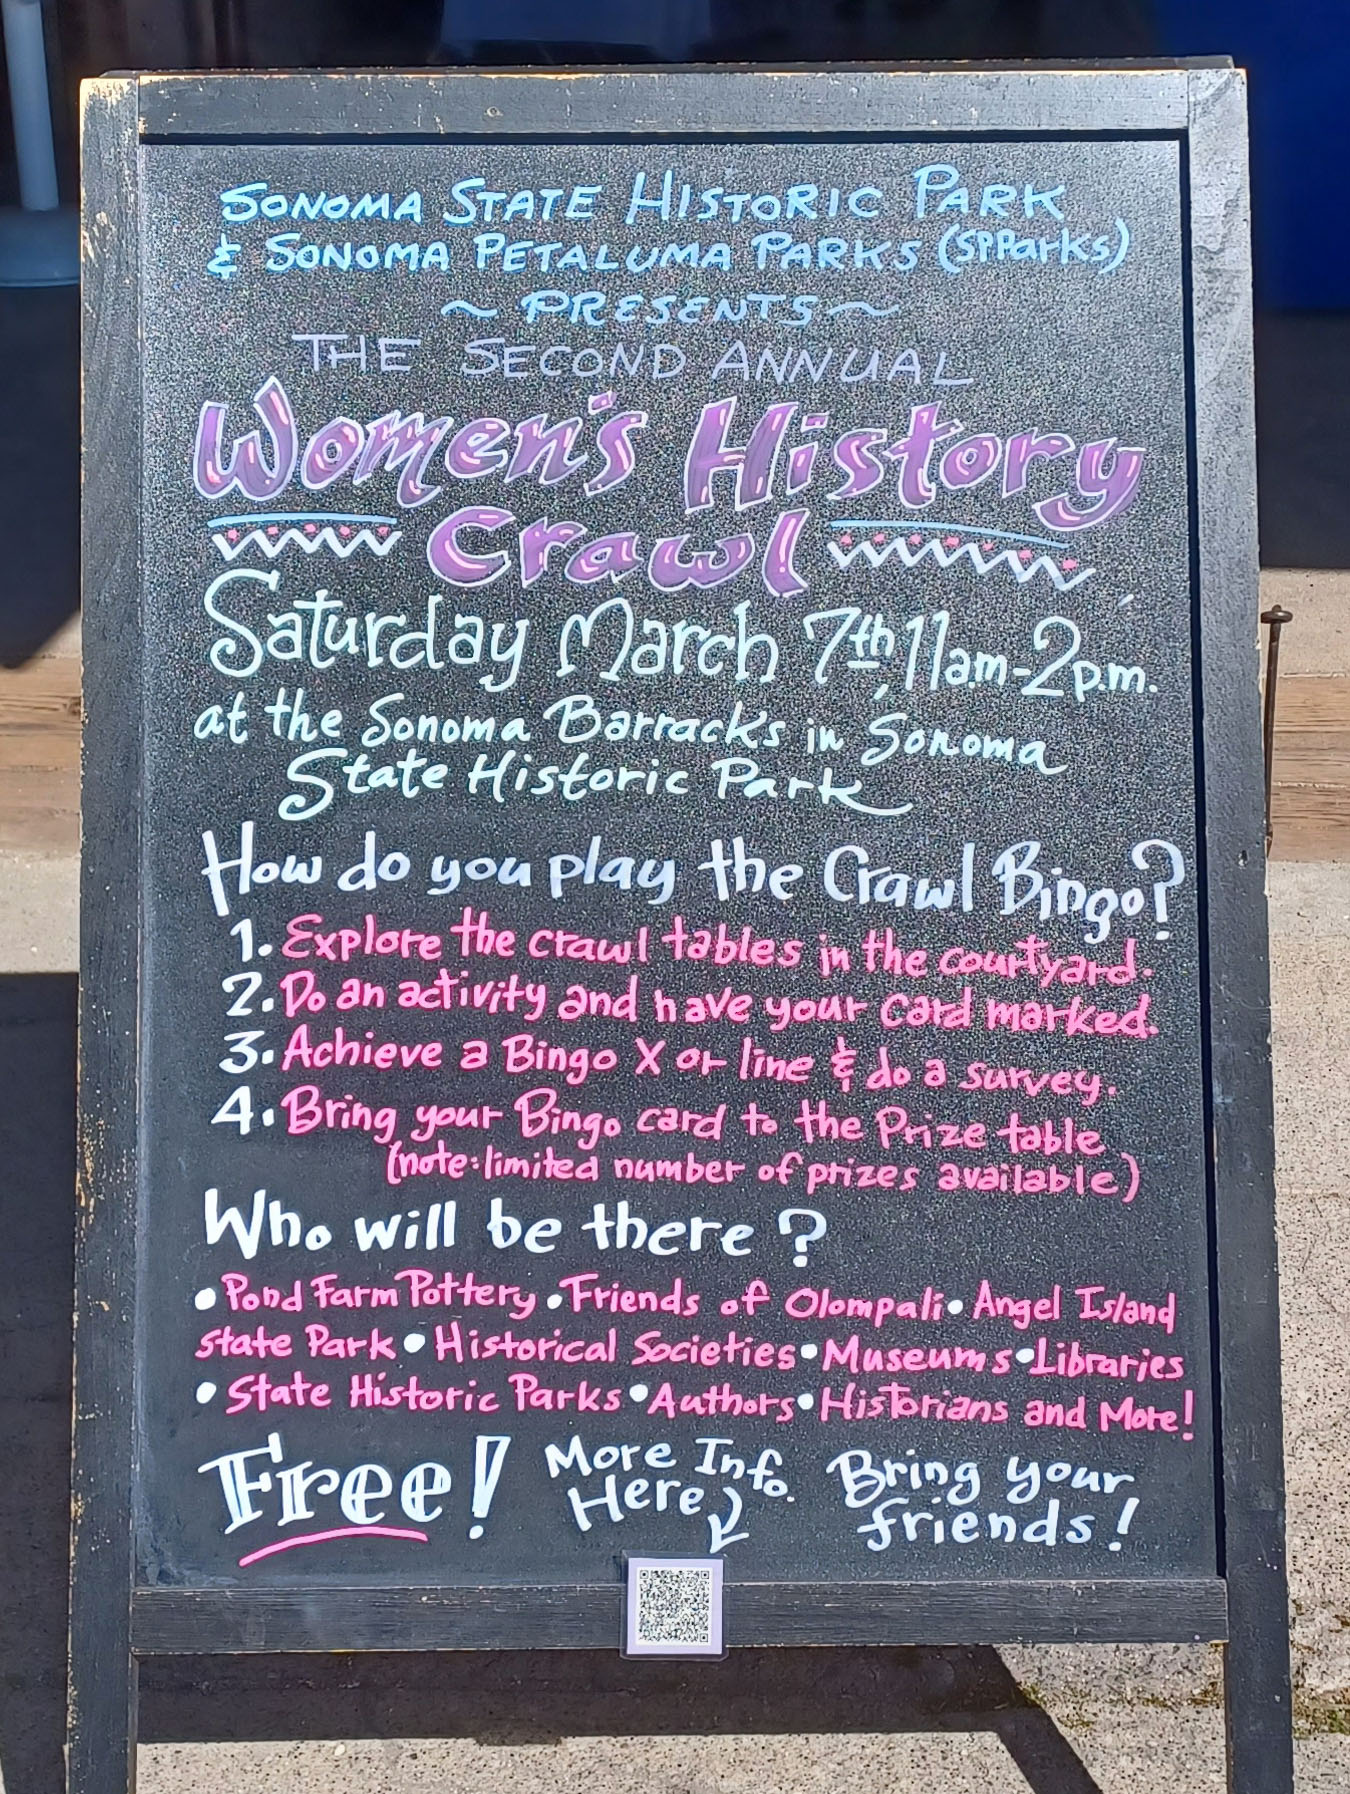 SONOMA STATE HISTORIC PARK
& SONOMA PETALUMA PARKS (SPParks)
~ PRESENTS ~
THE SECOND ANNUAL
Women's History
Crawl
Saturday March 7th, 11am-2p.m.
at the Sonoma Barracks in Sonoma
State Historic Park
How do you play the Crawl Bingo?
1. Explore the crawl tables in the courtyard.
2. Do an activity and have your card marked.
3. Achieve a Bingo X or line & do a survey.
4. Bring your Bingo card to the Prize table
(note: limited number of prizes available)
Who will be there?
• Pond Farm Pottery • Friends of Olompali • Angel Island
State Park • Historical Societies • Museums • Libraries
• State Historic Parks • Authors • Historians and More!
Free! More Info. Bring your
Here friends!